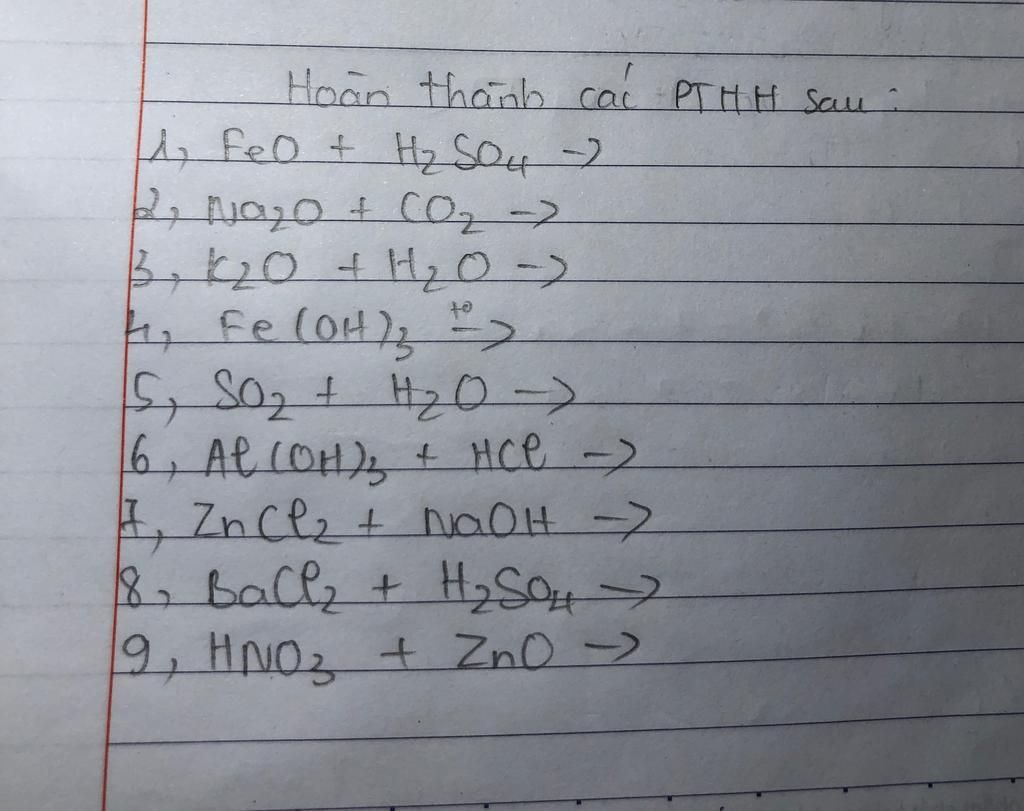 Hoàn thành các PTHH sau:
1, FeO + H2SO4 ->
2, Na2O + CO2 ->
3, K2O + H2O ->
4, Fe(OH)3 t° ->
5, SO2 + H2O ->
6, Al(OH)3 + HCl ->
7, ZnCl2 + NaOH ->
8, BaCl2 + H2SO4 ->
9, HNO3 + ZnO ->